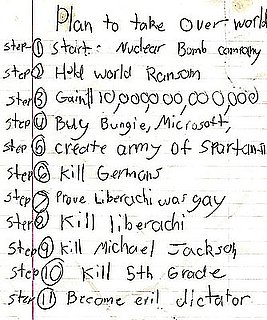 Plan to take over world
step ① Start: Nuclear Bomb company
step ② Held world Ransom
step ③ Gain $10,000,000,000,000
step ④ Buy Bungie, Microsoft,
step ⑤ create army of Spartan-II
step ⑥ Kill Germans
step ⑦ Prove Liberachi was gay
step ⑧ Kill liberachi
Step ⑨ Kill Michael Jackson
step ⑩ Kill 5th Grade
step ⑪ Become evil dictator